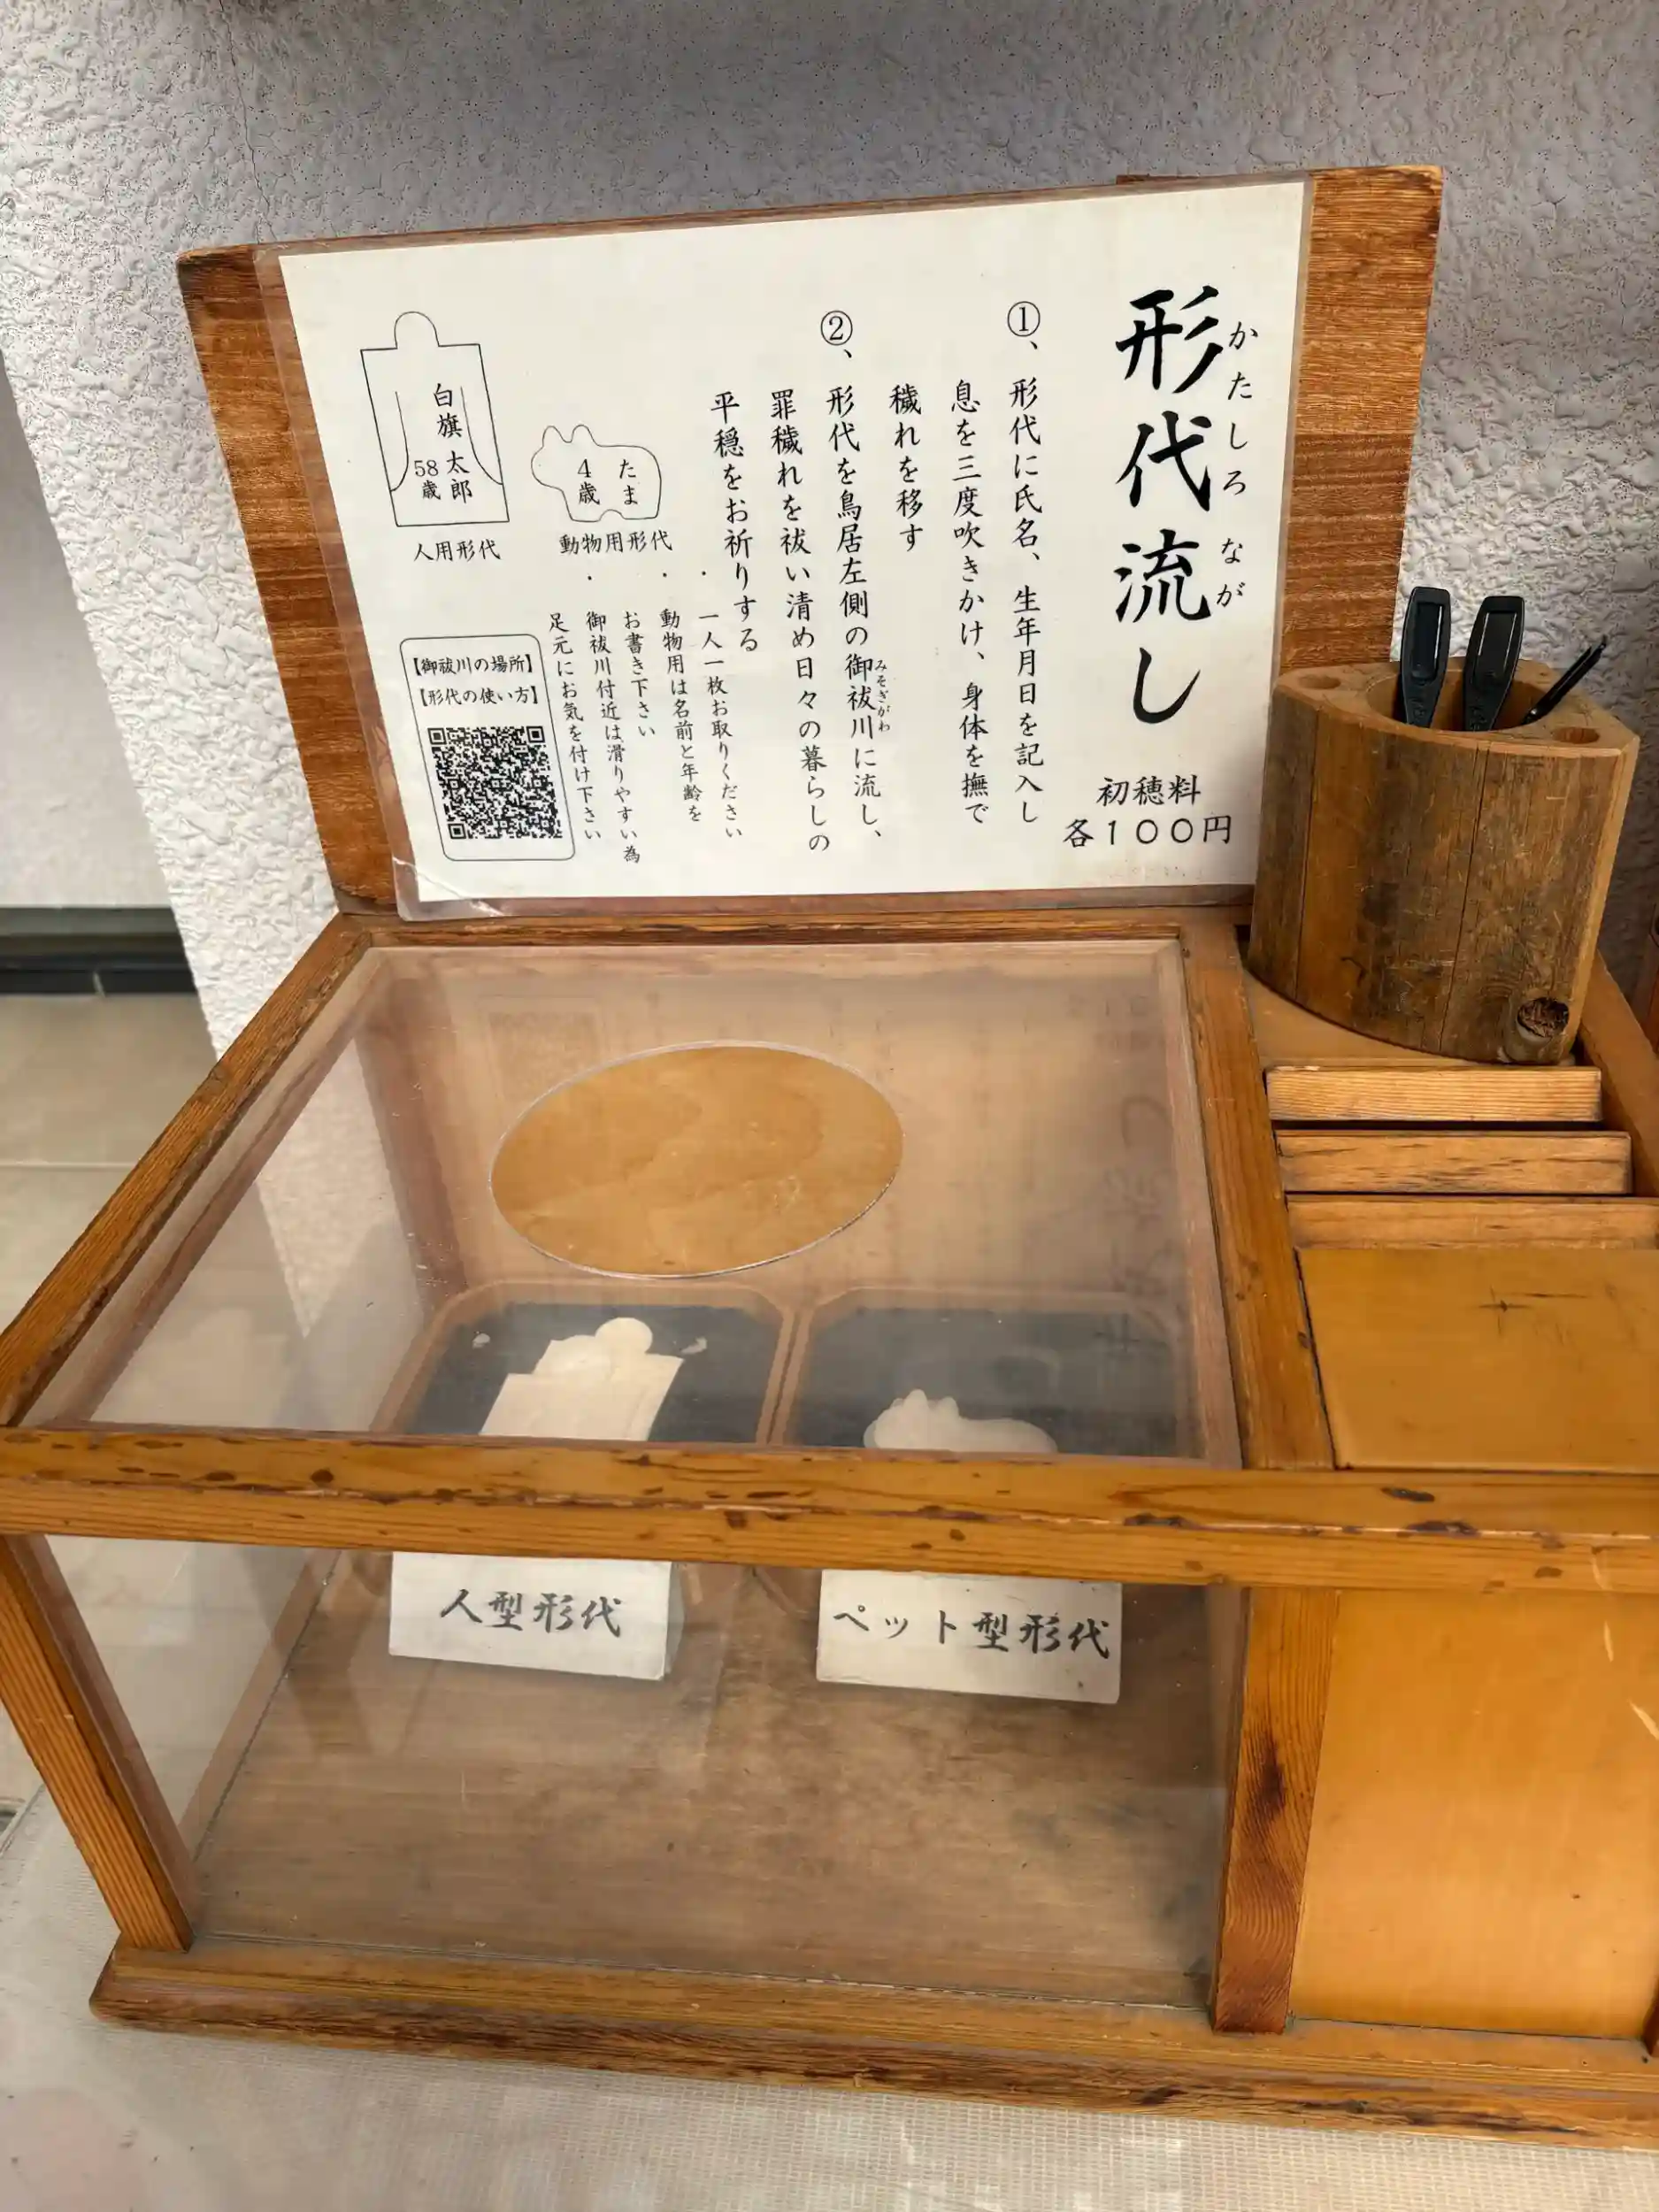 形代流し
かたしろ なが
初穂料
各100円
①、形代に氏名、生年月日を記入し
息を三度吹きかけ、身体を撫で
穢れを移す
②、形代を鳥居左側の御祓川に流し、
みそぎがわ
罪穢れを祓い清め日々の暮らしの
平穏をお祈りする
・一人一枚お取りください
・動物用は名前と年齢を
お書き下さい
・御祓川付近は滑りやすい為
足元にお気を付け下さい
たま
4歳
動物用形代
白旗太郎
58歳
人用形代
【御祓川の場所】
【形代の使い方】
人型形代
ペット型形代